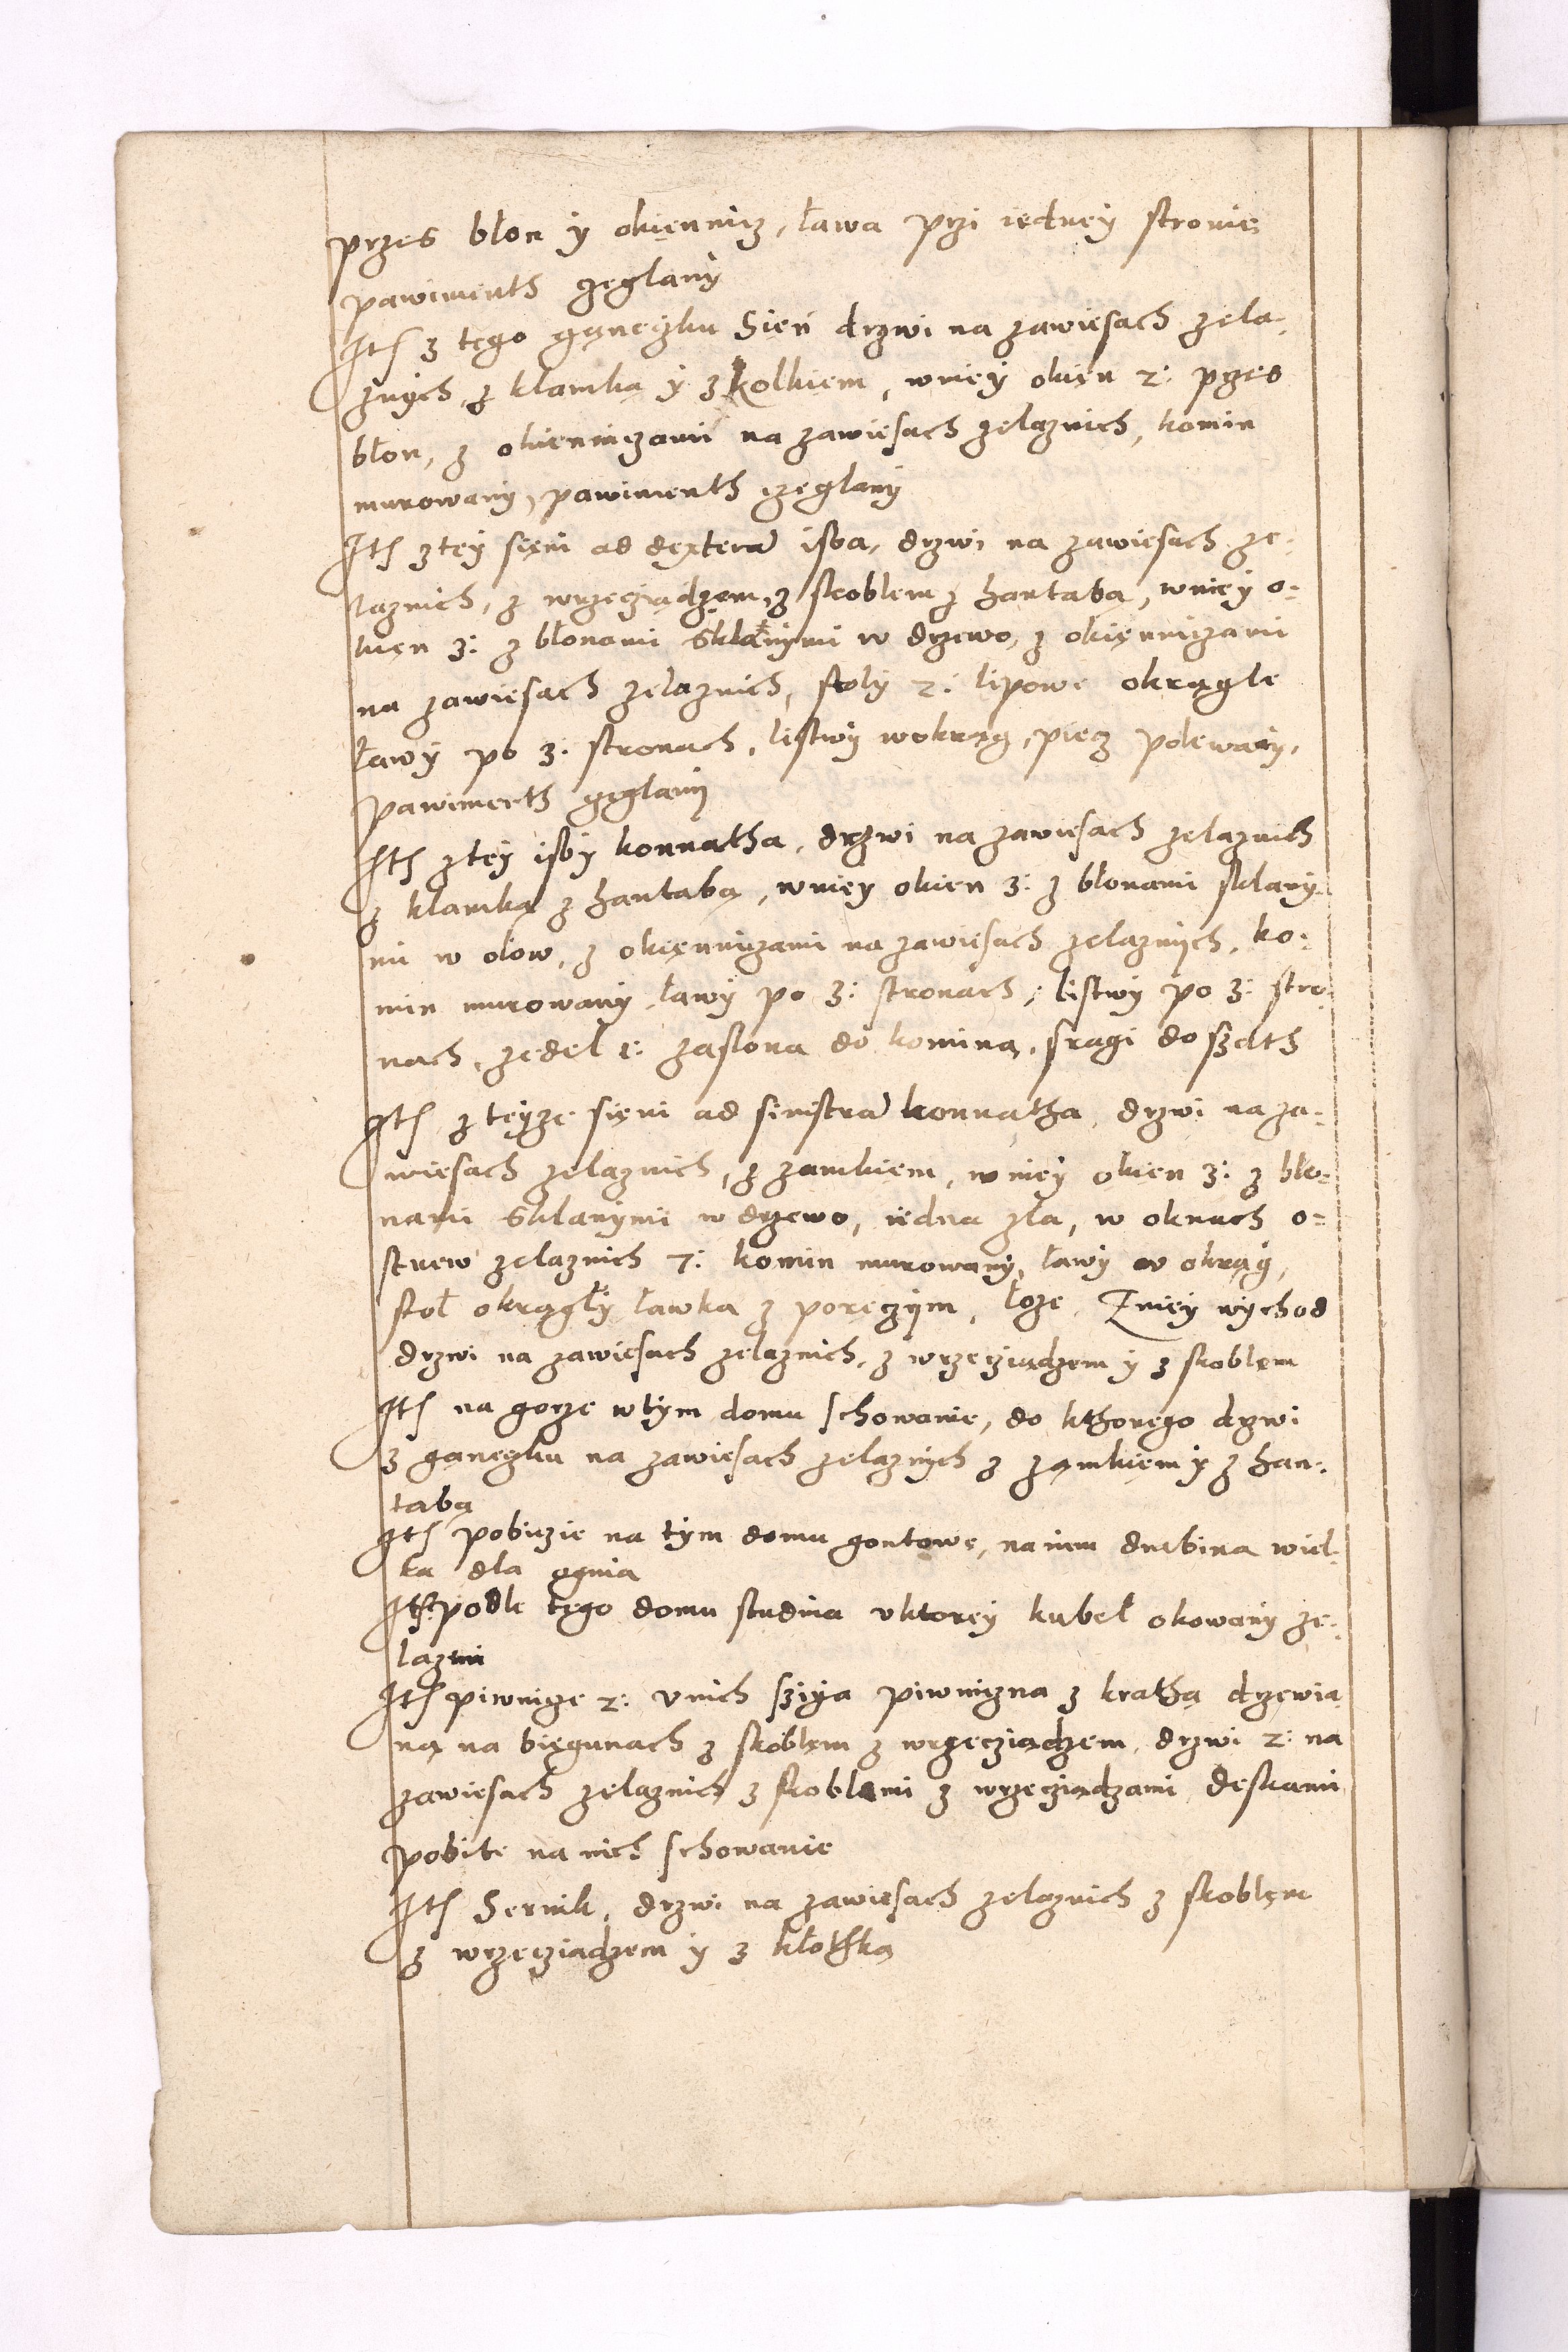 przes błon y okięnnicz, ława przi iedney stronie
pawimenth czeglany
Ith z tego gąneczku Sień drzwi na zawiesach zela-
znych, z klamką y z kolkiem, wniey okięn 2: przes
błon, z okiennicami na zawiesach zelaznich, komin
murowany, pawimenth czeglany
Ith ztey sięni ad dextera isba, drzwi na zawiesach ze-
laznich, z wrzecziądzem, z skoblem z hantabą, wniey o-
kięn 3: z błonami sklanymi w drzewo, z okięnniczami
na zawiesach zelaznich, stoly 2: lipowe okrągle
ławy po 3: stronach, listwy wokrąg, piecz polewany,
pawimenth czeglany
Ith ztey isby komnatha, drzwi na zawiesach zelaznich
z klamką z hantabą, wniey okien 3: z błonami sklany
mi w ołow, z okięnniczami na zawiesach zelaznych, ko-
min murowany, ławy po 3: stronach, listwy po 3: stro-
nach, zedel 1: zasłona do komina, sragi do szath
Ith z teyze sięni ad sinistra komnatha, drzwi na za-
wiesach zelaznich, z zamkiem, w niey okien 3: z bło-
nami sklanymi w drzewo, iedna zła, w oknach o-
strew zelaznich 7: komin murowany, ławy w okrąg,
stoł okrągły ławka z poręczym, łoze, Zniey wychod
drzwi na zawiesach zelaznich, z wrzecziądzem y z skoblem
Ith na gorze wtym domu schowanie, do kthorego drzwi
z ganeczku na zawiesach zelaznych z zamkiem y z han-
tabą
Ith pobiczie na tym domu gontowe, na niem drabina wiel-
ka dla ognia
Ith podle tęgo domu studnia v ktorey kubeł okowany że-
lazmi
Ith piwnicze 2: v nich sziya piwniczna z krathą drzewia
ną na biegunach z skoblem z wrzecziądzem, drzwi 2: na
zawiesach zelaznich z skoblami z wrzecziądzami deskami
pobite na nich schowanie
Ith Sernik, drzwi na zawiesach zelaznich z skoblem
z wrzecziądzem y z kłothką